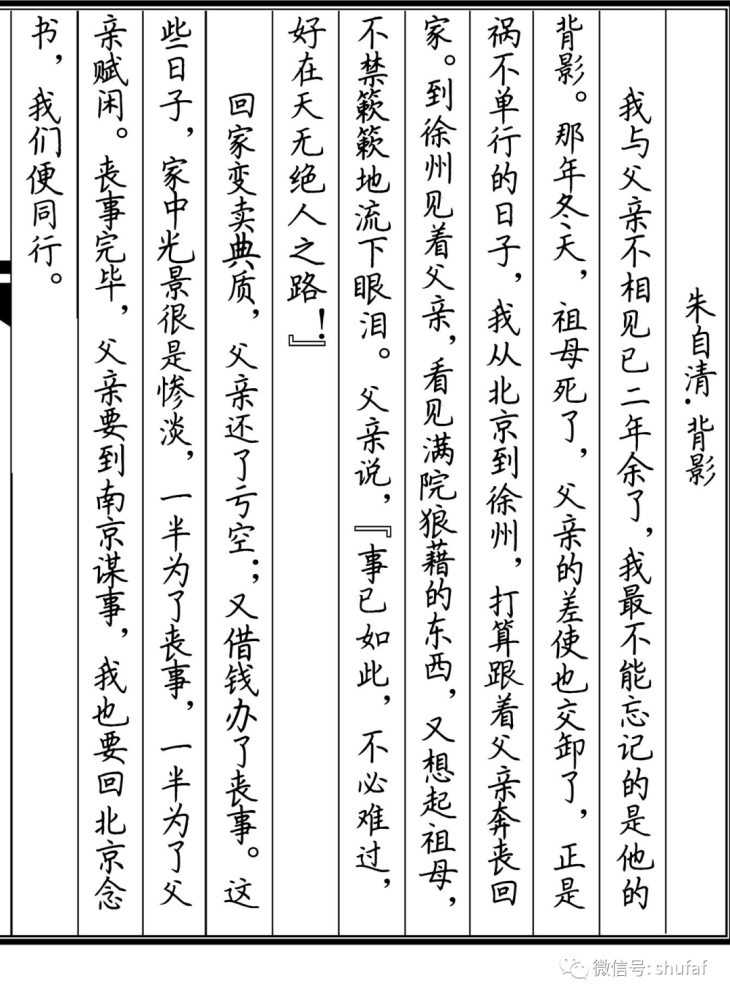 朱自清·背影
我与父亲不相见已二年余了，我最不能忘记的是他的
背影。那年冬天，祖母死了，父亲的差使也交卸了，正是
祸不单行的日子，我从北京到徐州，打算跟着父亲奔丧回
家。到徐州见着父亲，看见满院狼藉的东西，又想起祖母，
不禁簌簌地流下眼泪。父亲说，『事已如此，不必难过，
好在天无绝人之路！』
回家变卖典质，父亲还了亏空；又借钱办了丧事。这
些日子，家中光景很是惨淡，一半为了丧事，一半为了父
亲赋闲。丧事完毕，父亲要到南京谋事，我也要回北京念
书，我们便同行。
微信号: shufaf